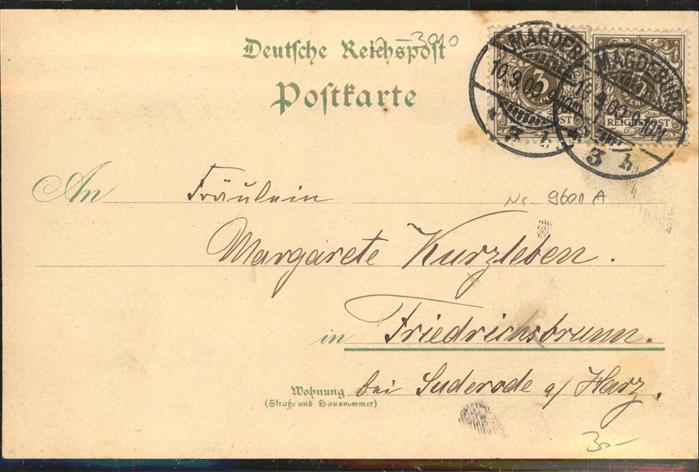 Deutsche Reichspost
3010
Postkarte
MAGDEBURG
10.9.00.
3 h
MAGDEBURG
10.9.00.9-10N
3 h
REICHSPOST
An Fräulein
Nr. 9600 A
Margarete Kurzleben.
in Friedrichsbrunn.
Wohnung bei Suderode a/ Harz.
(Straße und Hausnummer)
30-